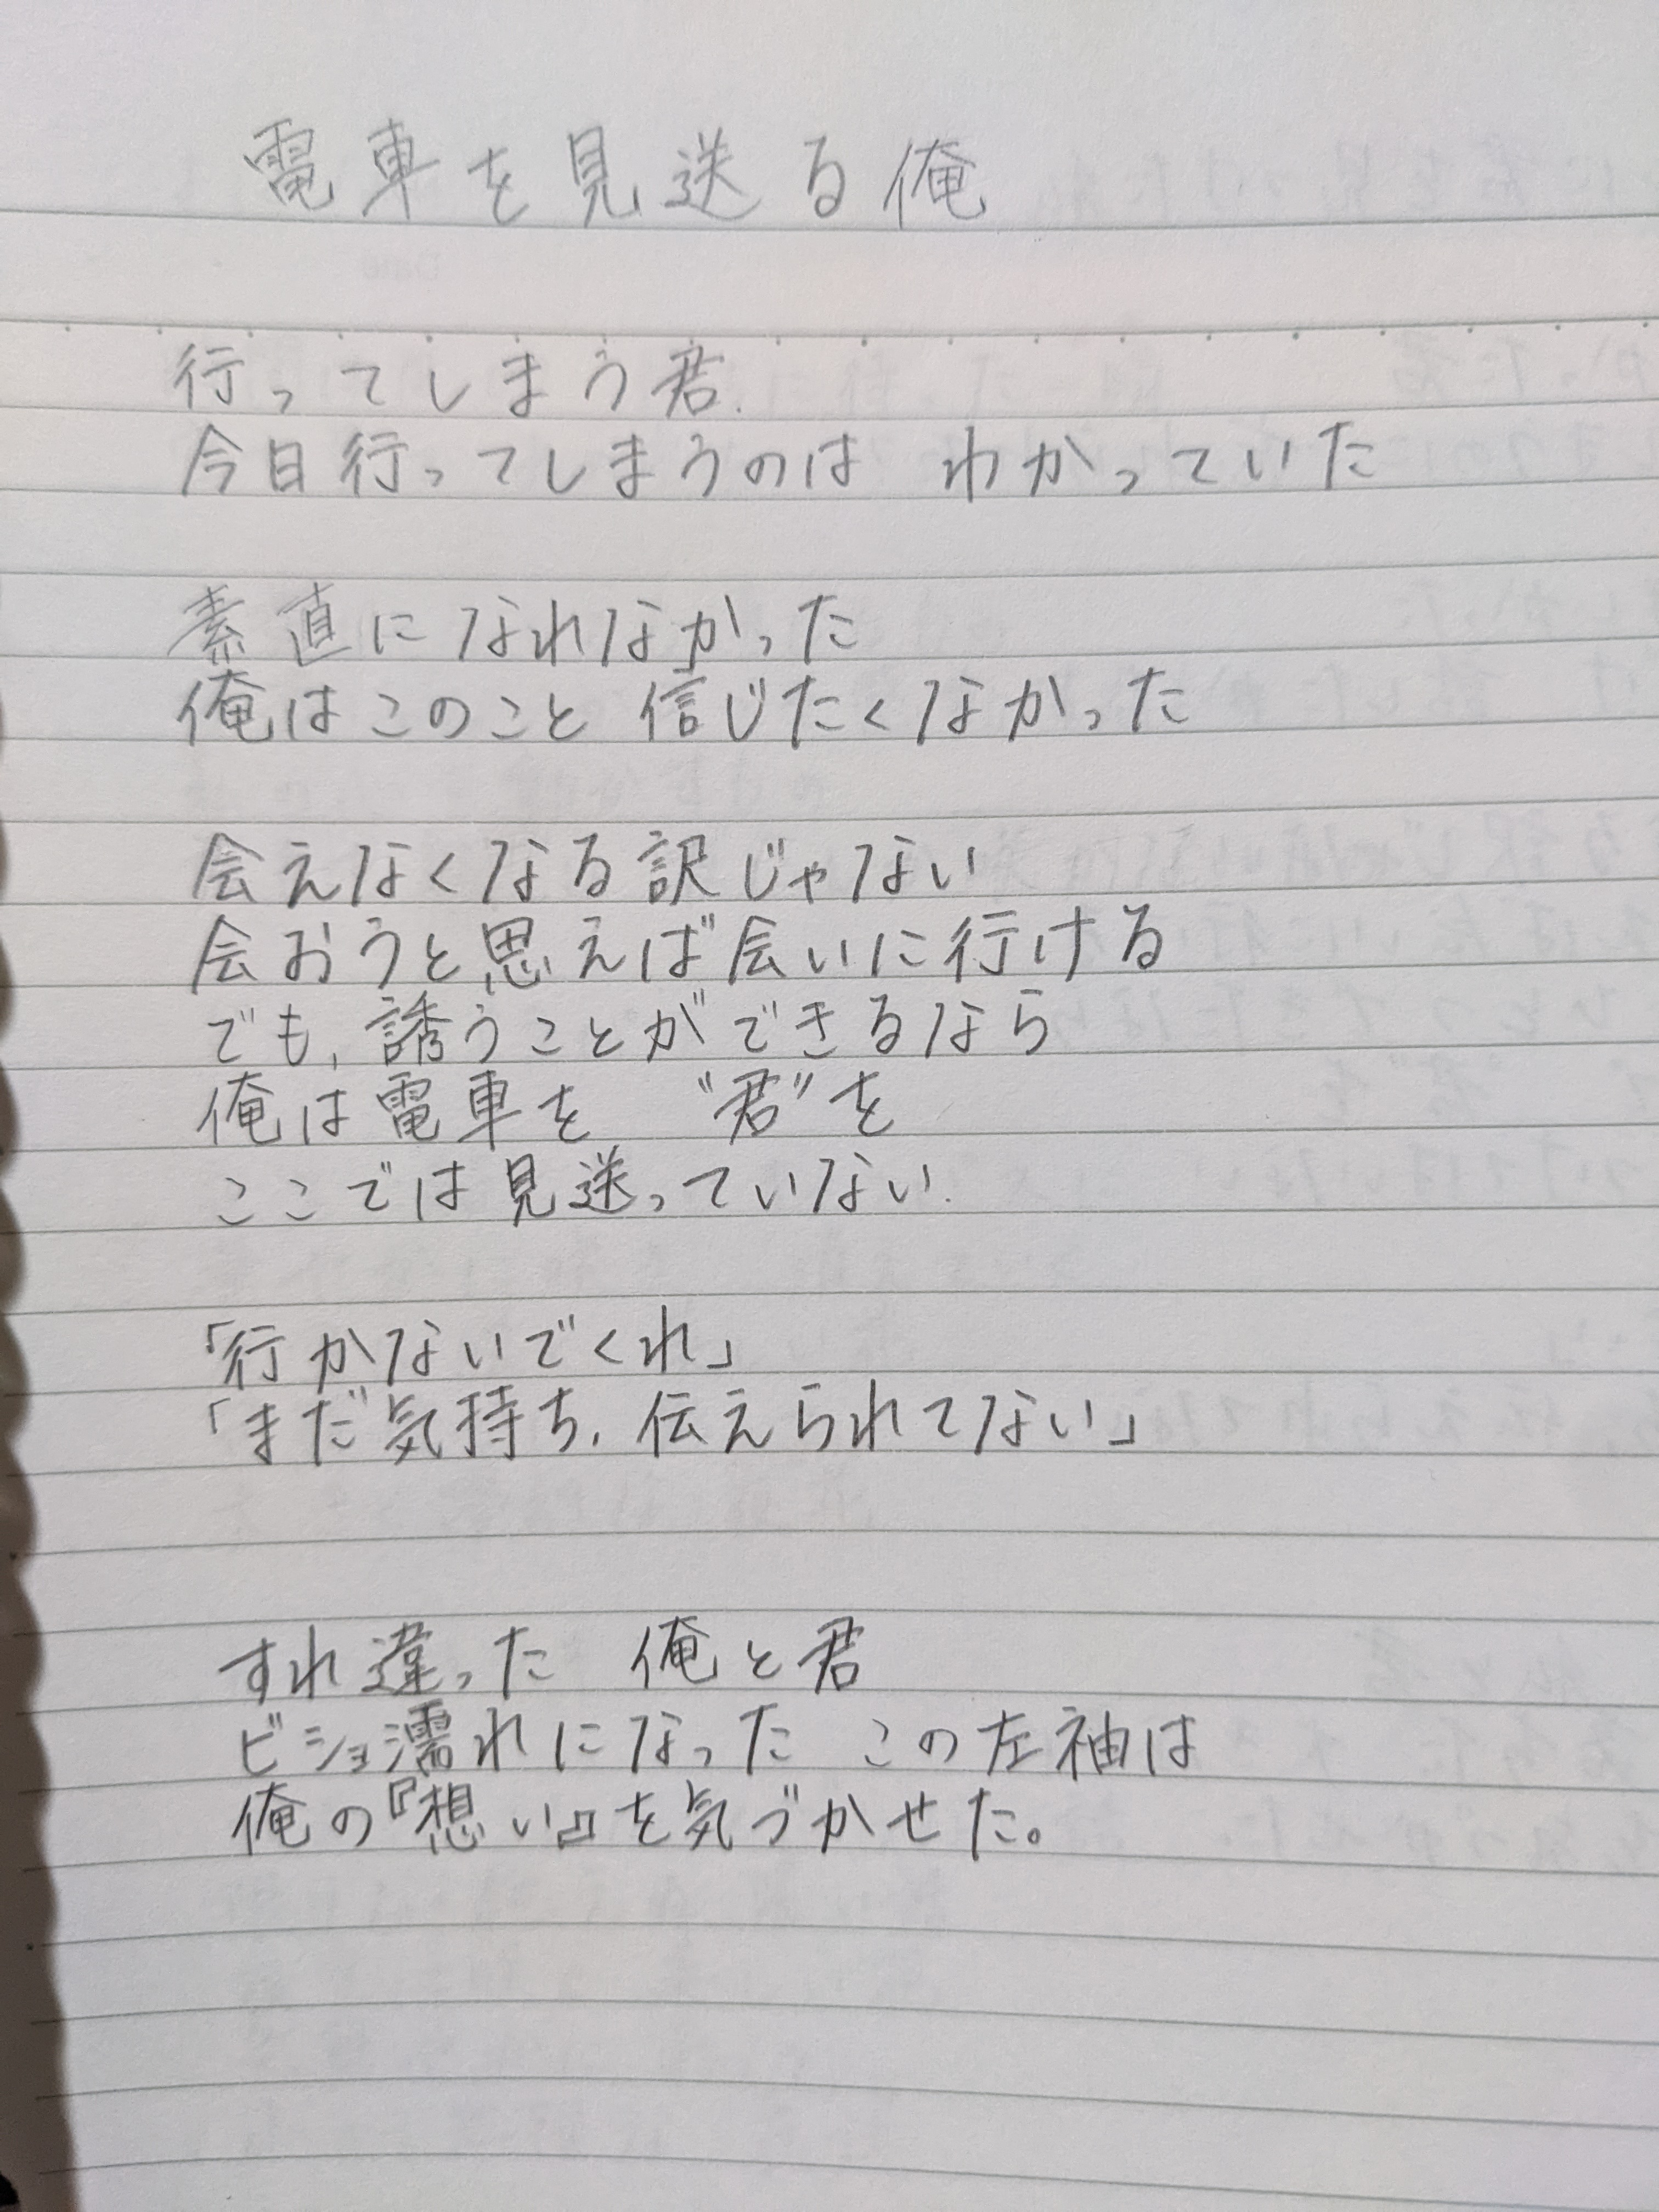 電車を見送る俺
行ってしまう君.
今日行ってしまうのは わかっていた
素直になれなかった
俺はこのこと 信じたくなかった
会えなくなる訳じゃない
会おうと思えば会いに行ける
でも、誘うことができるなら
俺は電車を "君"を
ここでは見送っていない.
「行かないでくれ」
「まだ気持ち、伝えられてない」
すれ違った 俺と君
ビショ濡れになった この左袖は
俺の『想い』を気づかせた。